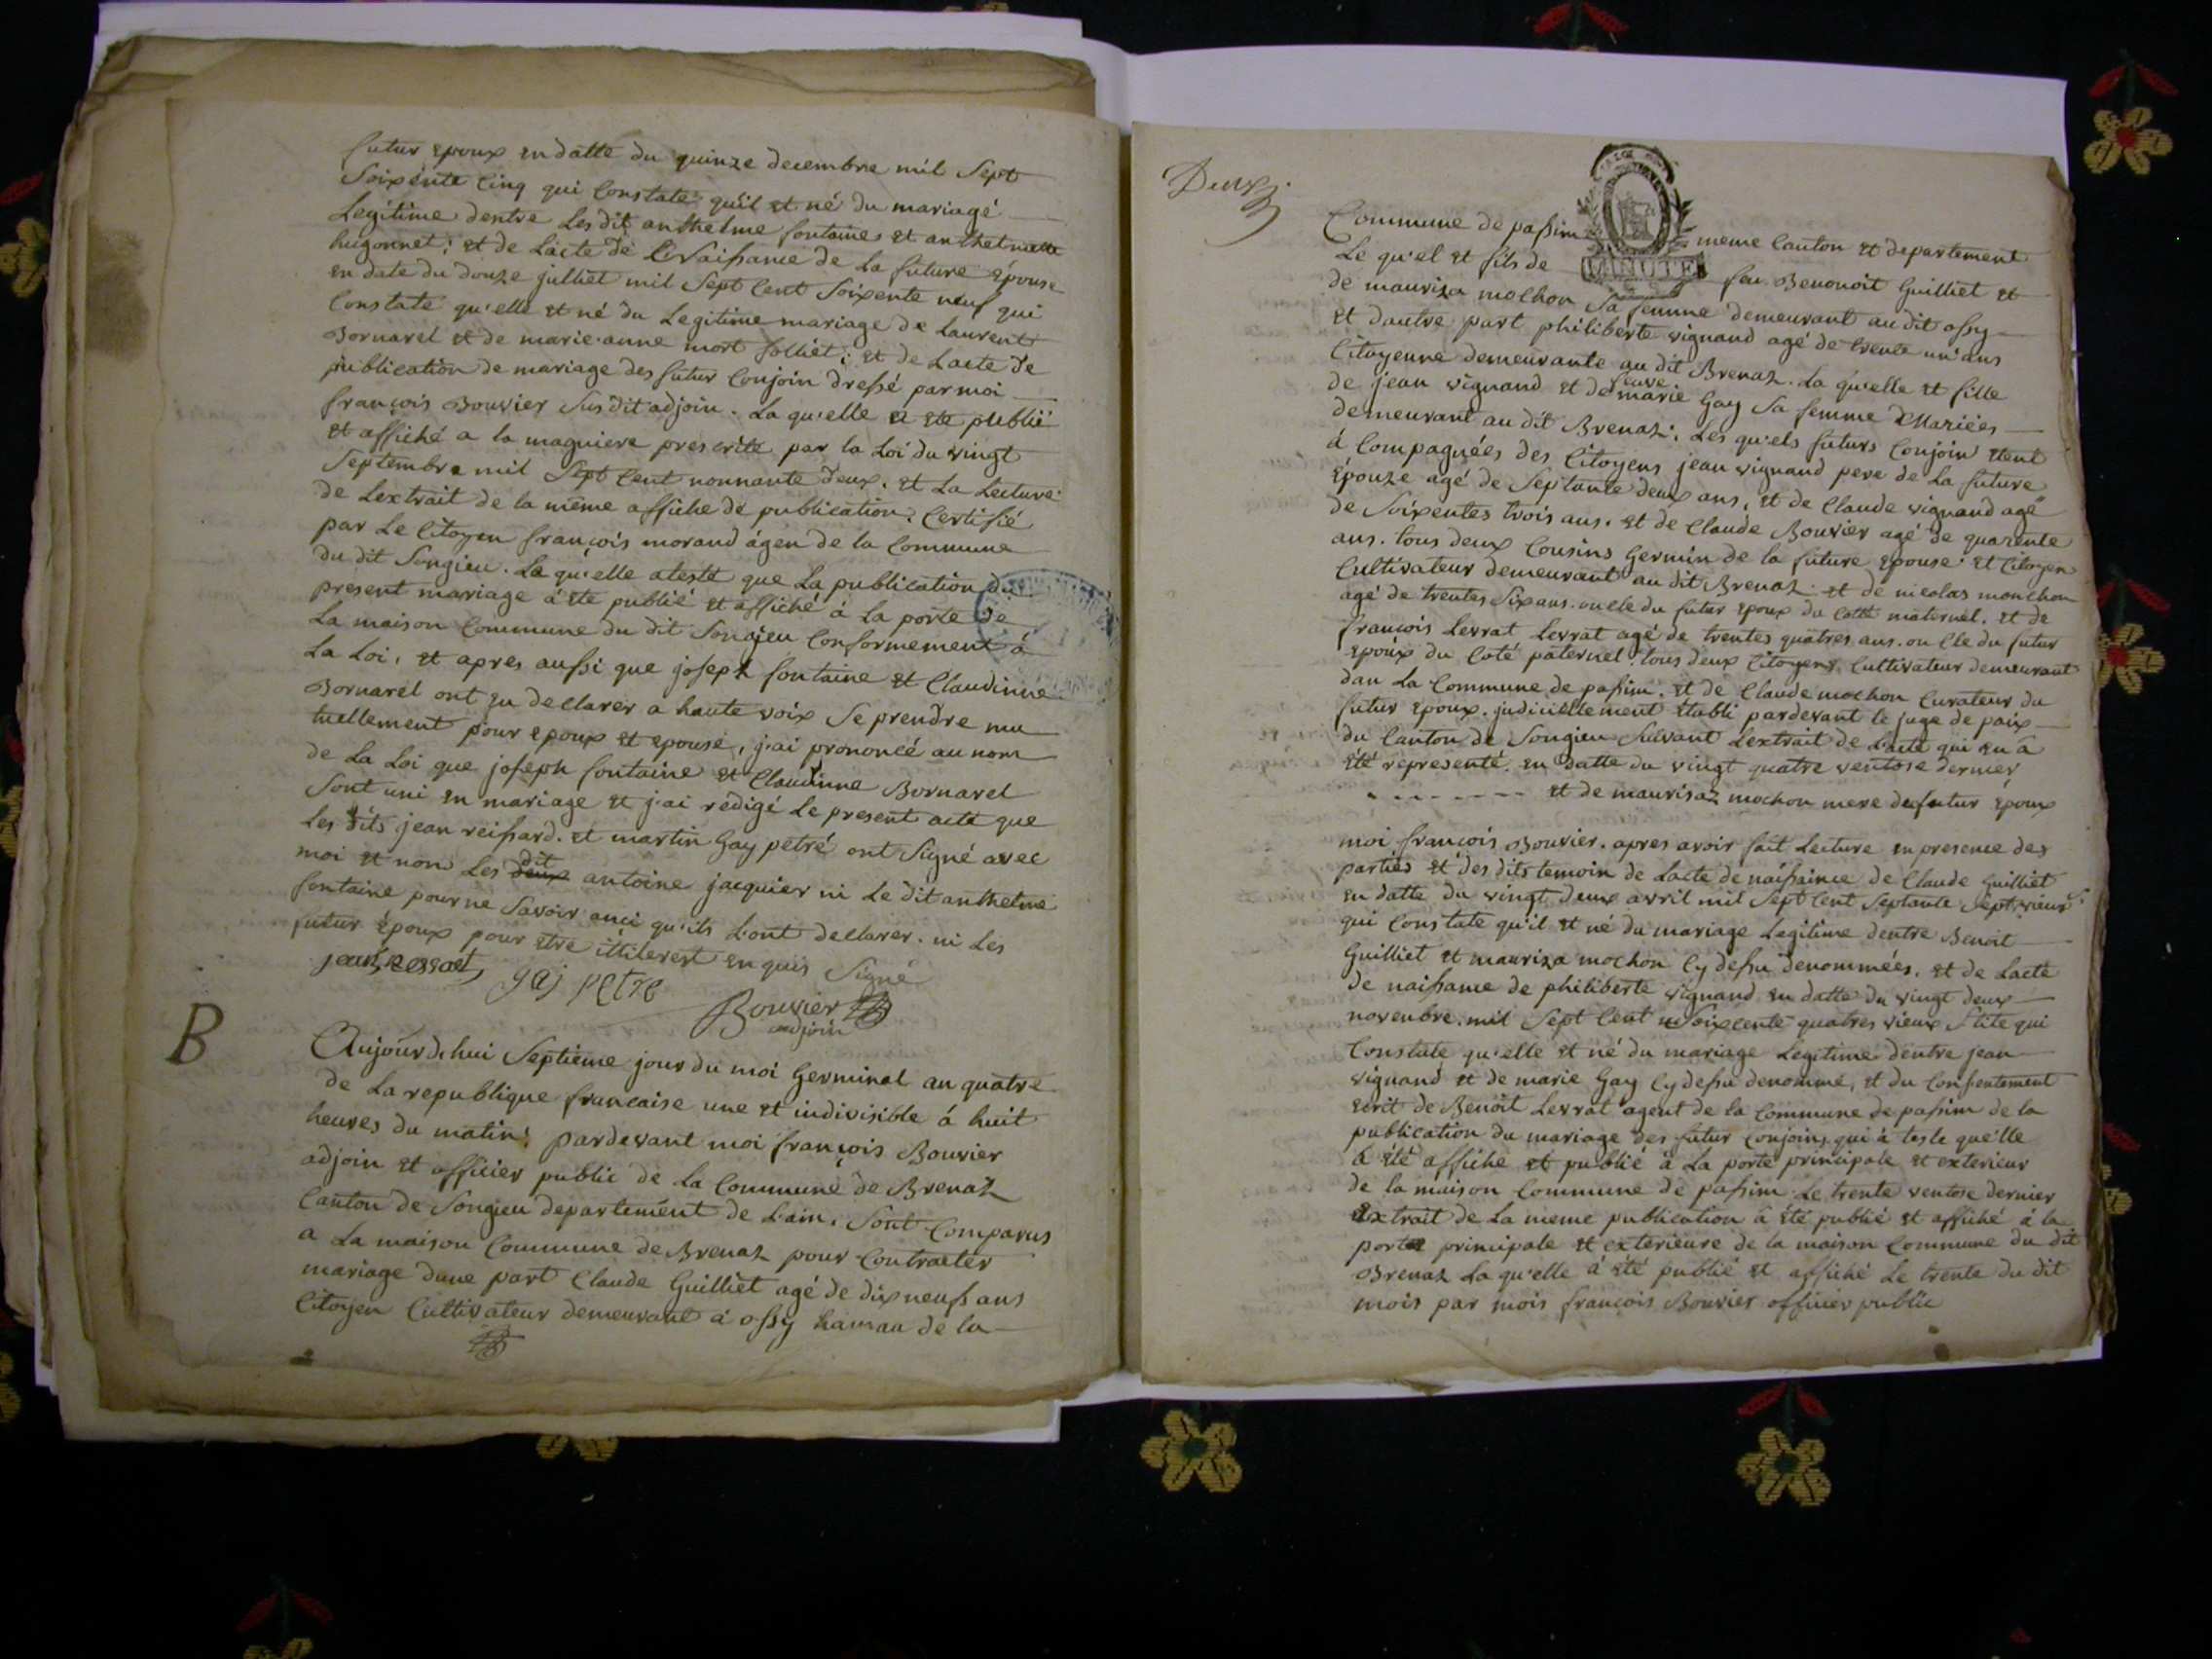 futur epoux en datte du quinze decembre mil Sept
Soixente Cinq qui Constate qu'il et né du mariagé
Legitime dentre Les dit anthelme fontaines et anthelmette
hugonnet; et de Lacte de Naissance de La future épouse
en date du douze julliet mil Sept Cent Soixente neuf qui
Constate qu'elle et né du Legitime mariage de Laurent
Bornarel et de marie anne mort folliet; et de Lacte de
publication de mariage des futur Conjoin dressé par moi
françois Bouvier Susdit adjoin. La qu'elle a ete publié
et affiché a la magniere prescrite par la Loi du vingt
Septembre mil Sept Cent nonnante deux. et La Lecture
de Lextrait de la même affiche de publication. Certifié
par Le Citoyen françois morand ágen de la Commune
du dit Songieu. La qu'elle ateste que La publication du
present mariage á ete publié et affiché á La porte de
La maison Commune du dit Songieu Conformement á
La Loi, et apres aussi que joseph fontaine et Claudinne
Bornarel ont eu declarer a haute voix Se prendre mu
tuellement pour epoux et epouse, j'ai prononcé au nom
de La Loi que joseph fontaine et Claudinne Bornarel
Sont uni en mariage et j'ai redigé Le present acte que
Les dits jean reissard. et martin Gay petré ont Signé avec
moi et non Les deux dit antoine jacquier ni Le dit anthelme
fontaine pour ne Savoir anci qu'ils L'ont declarer. ni Les
futur époux pour etre ittilerest en quis Signé
jean gaj petre
Bouvier
adjoin
B
Aujourd'hui Septieme jour du moi Germinal an quatre
de La republique francaise une et indivisible á huit
heures du matin; pardevant moi françois Bouvier
adjoin et officier public de La Commune de Brenaz
Canton de Songieu departement de L'ain. Sont Comparus
a La maison Commune de Brenaz pour Contracter
mariage dune part Claude Guilliet agé de dix neuf ans
Citoyen Cultivateur demeurant á ossy hamau de la
Deux
Commune de passim meme Canton et departement
Le qu'el et fils de feu Benonoit Guilliet et
de mauriza mochon Sa femme demeurant au dit ossy
et dautre part philiberte vignand agé de trente un ans
Citoyenne demeurante au dit Brenaz. La qu'elle et fille
de jean vignand et de feuve marie Gay Sa femme Mariées
demeurant au dit Brenaz: Les qu'els futurs Conjoin etent
á Compagnées des Citoyens jean vignand pere de La future
Épouze agé de Septante deux ans, et de Claude vignand agé
de Soixentes trois ans. et de Claude Bouvier agé de quarente
ans. tous deux Cousins Germin de la future epouse et Citoyen
Cultivateur demeurant au dit Brenaz et de nicolas monchon
agé de trentes Six ans. oncle du futur epoux du Cotté maternel. et de
françois Levrat Levrat agé de trentes quatres ans. on Cle du futur
epoux du Coté paternel. tous deux Citoyens Cultivateur demeurant
dan La Commune de passim. et de Claude mochon Curateur du
futur epoux. judiciellement établi pardevant le juge de paix
du Canton de Songieu Suivant Lextrait de Lacte qui en á
été représenté. en datte du vingt quatre ventose dernier
- - - - - - - et de maurisaz mochon mere du futur époux
moi françois Bouvier. apres avoir fait Lecture en presence des
parties et des dits temoin de Lacte de náissaince de Claude Guilliet
en datte du vingt deux avril mil Sept Cent Septante Sept vieux S.
qui Constate qu'il et né du mariage Legitime dentre Benoit
Guilliet et mauriza mochon Cy dessu denommées. et de Lacte
de naissance de philiberte vignand en datte du vingt deux
novenbre. mil Sept Cent Soixcente quatres vieux Stile qui
Constate qu'elle et né du mariage Legitime dentre jean
vignand et de marie Gay Cy dessu denommé, et du Consentement
ecrit de Benoit Levrat agent de la Commune de passim de la
publication du mariage des futur Conjoins qui á teste que'lle
á été affiche et publié á La porte principale et exterieur
de la maison Commune de passim Le trente ventose dernier
Extrait de La meme publication á été publié et affiché á la
porte principale et exterieure de la maison Commune du dit
Brenaz La qu'elle á été publié et affiché Le trente du dit
mois par mois françois Bouvier officier public